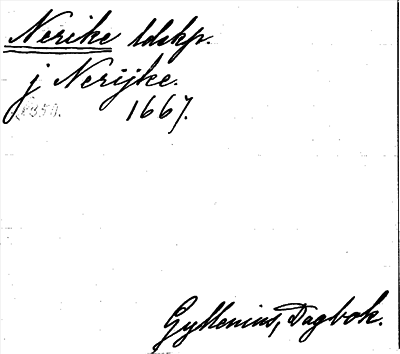 Nerike ldskp.
j Nerijke.
1667.
Gyllenius, Dagbok.